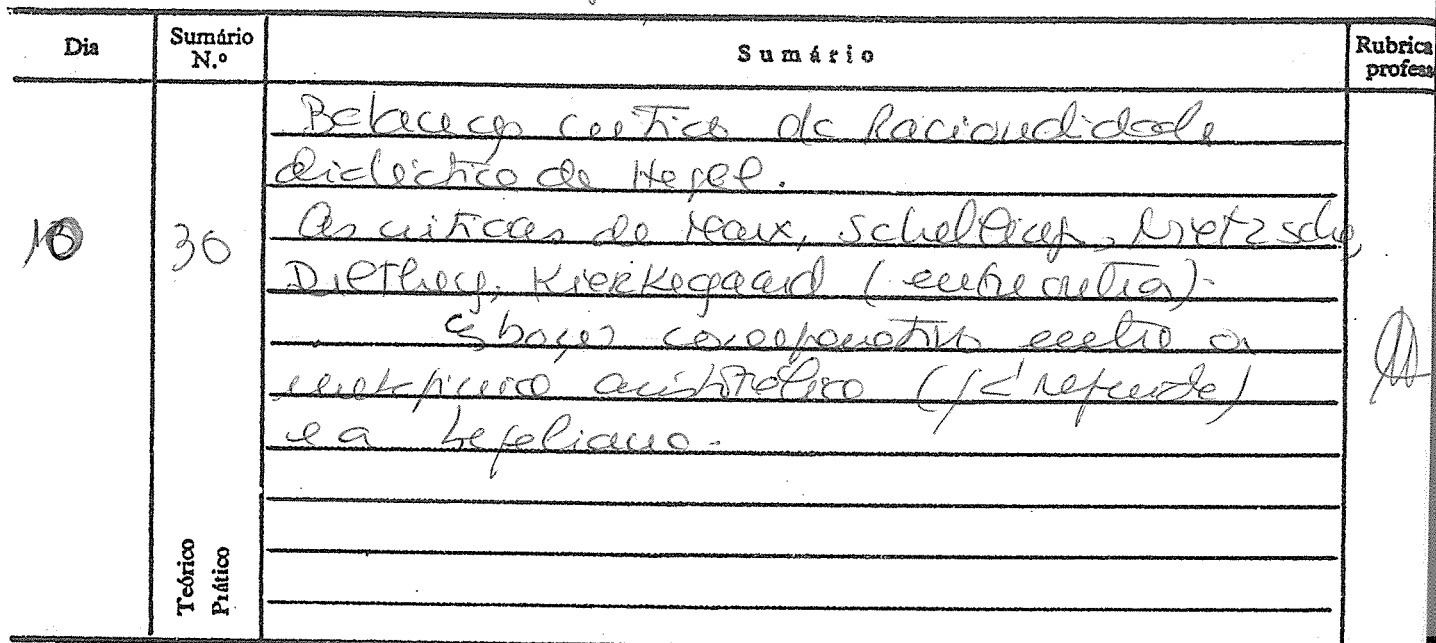 Dia Sumário N.º Sumário Rubrica profess
crítica da Racionalidade
dialéctica de Hegel.
10 30 As críticas de Marx, Schelling, Nietzsche,
Dilthey, Kierkegaard (entre outros).
Esboço comparativo entre a
aristotélica
e a hegeliana.
Teórico
Prático